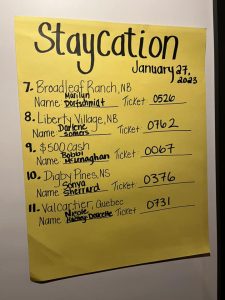 StayCation
January 27, 2023
7. Broadleaf Ranch, NB
Name Marilyn Dortschmidt Ticket 0526
8. Liberty Village, NB
Name Darlene Somers Ticket 0762
9. $500 Cash
Name Bobbi Ticket 0067
10. Digby Pines, NS
Name Sonya Sherrard Ticket 0376
11. Valcartier, Quebec
Name Nicole Ticket 0731